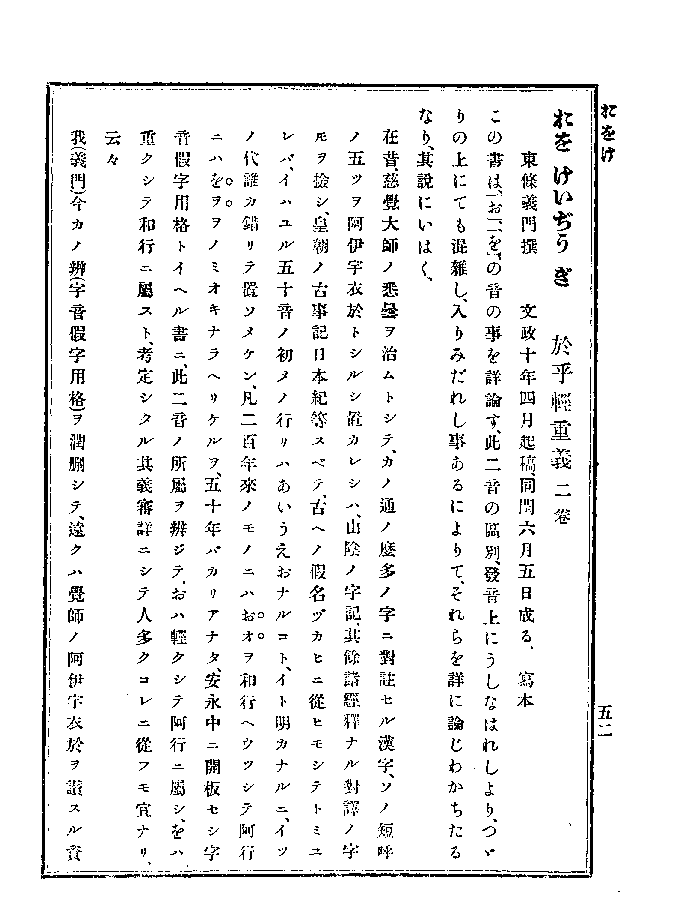 おをけ
おを けいぢう ぎ　於乎輕重義 二卷
東條義門撰　文政十年四月起稿、同閏六月五日成る、　寫本
この書は、「お」「を」の音の事を詳論す、此二音の區別、發音上にうしなはれしより、つゞ
りの上にても混雜し、入りみだれし事あるによりて、それらを詳に論じわかちたる
なり、其說にいはく、
在昔、慈覺大師ノ悉曇ヲ治ムトシテ、カノ通ノ麽多ノ字ニ對註セル漢字、ソノ短呼
ノ五ツヲ阿伊宇衣於トシルシ置カレシハ、山陰ノ字記、其餘諸經釋ナル對譯ノ字
モヲ撿シ、皇朝ノ古事記日本紀等スベテ、古ヘノ假名ヅカヒニ從ヒモシテトミユ
レバ、イハユル五十音ノ初メノ行リハあいうえおナルコト、イト明カナルニ、イツ
ノ代誰カ錯リテ置ソメケン、凡二百年來ノモノニハおオヲ和行ヘウツシテ阿行
ニハをヲヲノミオキナラヘリケルヲ、五十年バカリアナタ、安永中ニ開板セシ字
音假字用格トイヘル書ニ、此二音ノ所屬ヲ辨ジテ、おハ輕クシテ阿行ニ屬シ、をハ
重クシテ和行ニ屬スト、考定シタル其義審詳ニシテ人多クコレニ從フモ宜ナリ、
云々
我(義門)今カノ辨(字音假字用格)ヲ潤刪シテ、遠クハ覺師ノ阿伊宇衣於ヲ讚スル資
五二